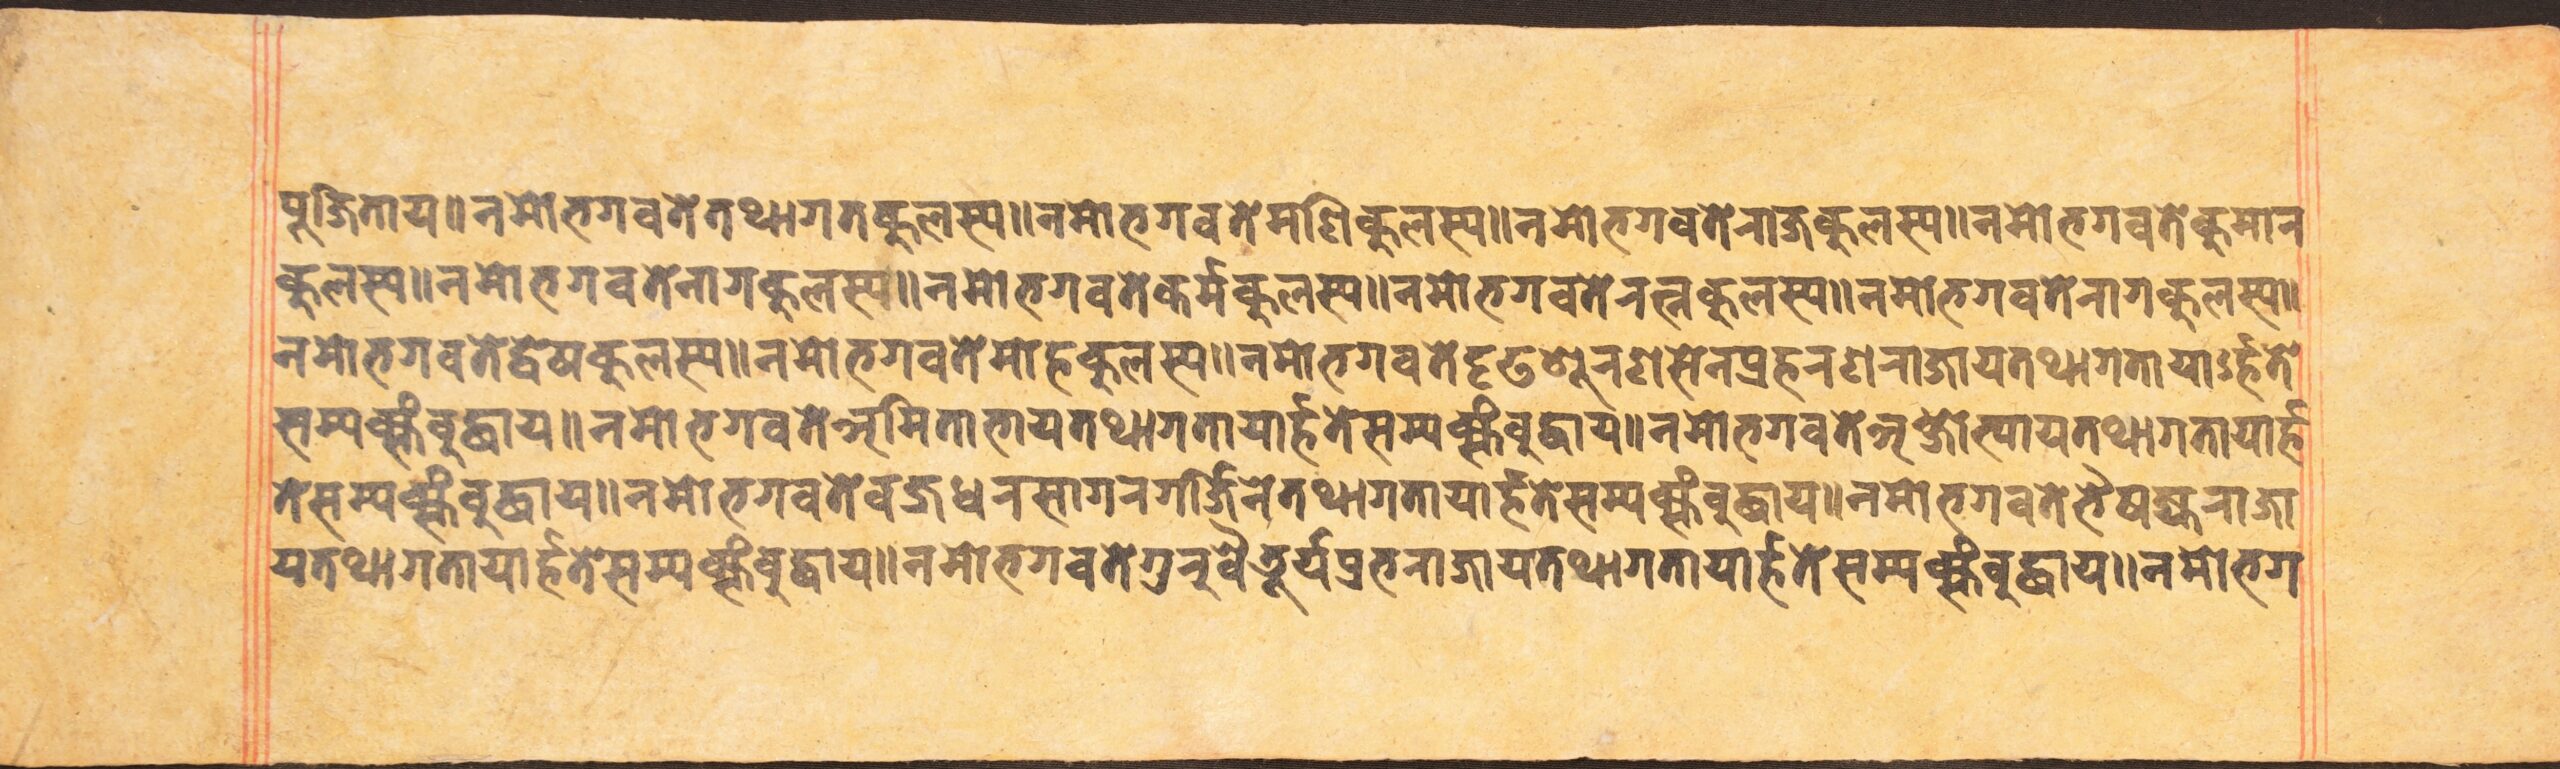 पूजिताय॥नमोभगवतेतथागतकुलस्य॥नमोभगवतेमणिकुलस्य॥नमोभगवतेराजकुलस्य॥नमोभगवतेकुमार
कुलस्य॥नमोभगवतेनागकुलस्य॥नमोभगवतेकर्मकुलस्य॥नमोभगवतेरत्नकुलस्य॥नमोभगवतेरागकुलस्य॥
नमोभगवतेद्वेषकुलस्य॥नमोभगवतेमोहकुलस्य॥नमोभगवतेदृढशूरणसेनप्रहरणराजायतथागतायाऽर्हते
सम्यक्संबुद्धाय॥नमोभगवतेअमिताभायतथागतायार्हतेसम्यक्संबुद्धाय॥नमोभगवतेअक्षोभ्यायतथागतायार्ह
तेसम्यक्संबुद्धाय॥नमोभगवतेवज्रधरसागरगर्जिनेतथागतायार्हतेसम्यक्संबुद्धाय॥नमोभगवतेभैषज्यराजा
यतथागतायार्हतेसम्यक्संबुद्धाय॥नमोभगवतेगुरुवैडूर्यप्रभराजायतथागतायार्हतेसम्यक्संबुद्धाय॥नमोभग